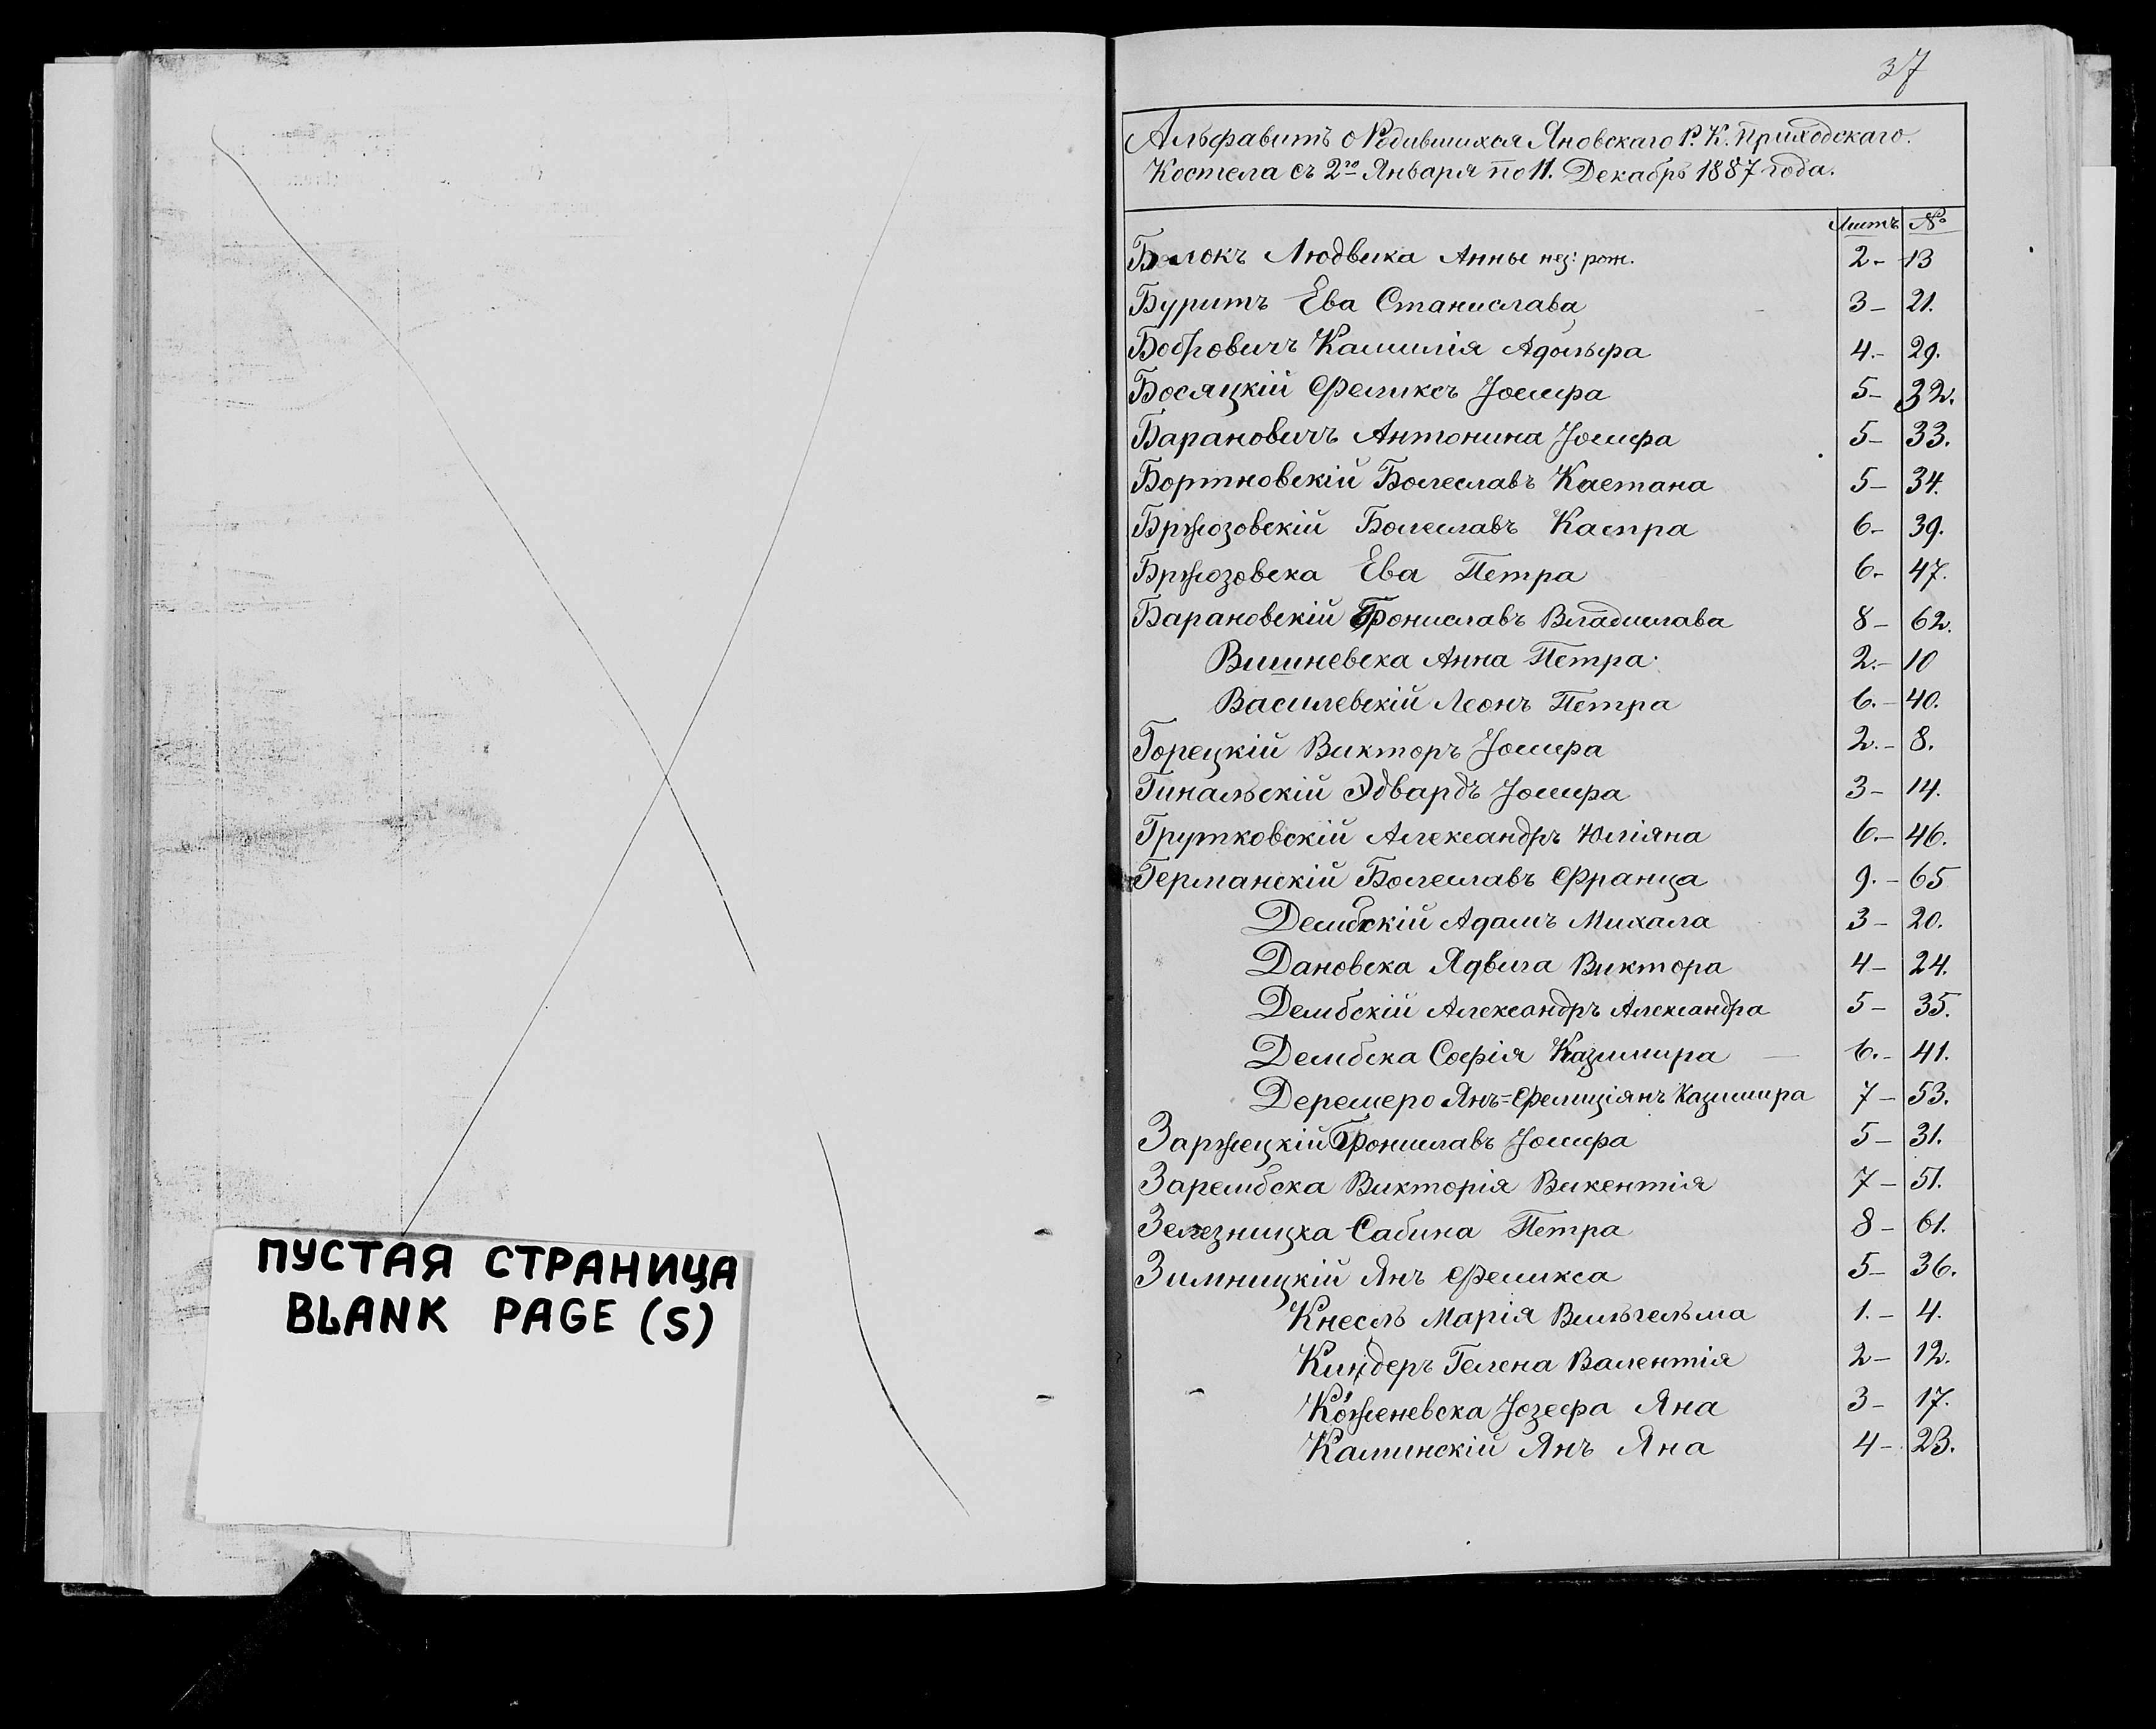 ПУСТАЯ СТРАНИЦА
BLANK PAGE (S)
37
Альфавитъ о Родившихся Яновскаго Р. К. Приходскаго.
Костела съ 2го Января по 11. Декабрь 1887 года.
Листъ №
Людвика Анны нез: рож. 2.- 13
Буритъ Ева Станислава 3- 21.
Бобровичъ Камилія Адольфа 4.- 29.
Босяцкій Феликсъ Јосифа 5- 32.
Барановичъ Антонина Јосифа 5- 33.
Бортновскій Болеславъ Каетана 5- 34.
Бржозовскій Болеславъ Каспра 6- 39.
Бржозовска Ева Петра 6- 47.
Барановскій Брониславъ Владислава 8- 62.
Вишневска Анна Петра. 2.- 10
Василевскій Леонъ Петра 6.- 40.
Горецкій Викторъ Јосифа 2.- 8.
Гинальскій Эдвардъ Јосифа 3- 14.
Грутковскій Александръ Юліяна 6.- 46.
Германскій Болеславъ Франца 9.- 65
Дембскій Адамъ Михала 3- 20.
Дановска Ядвига Виктора 4- 24.
Дембскій Александръ Александра 5- 35.
Дембска Софія Казимира 6.- 41.
Деремеро Янъ=Фелиціянъ Казимира 7- 53.
Заржецкій Брониславъ Јосифа 5- 31.
Зарембска Викторія Викентія 7- 51.
Зелезницка Сабина Петра 8- 61.
Зимницкій Янъ Феликса 5- 36.
Кнесль Марія Вильгельма 1.- 4.
Киндеръ Гелена Валентія 2- 12.
Корженевска Јозефа Яна 3- 17.
Калинскій Янъ Яна 4- 23.